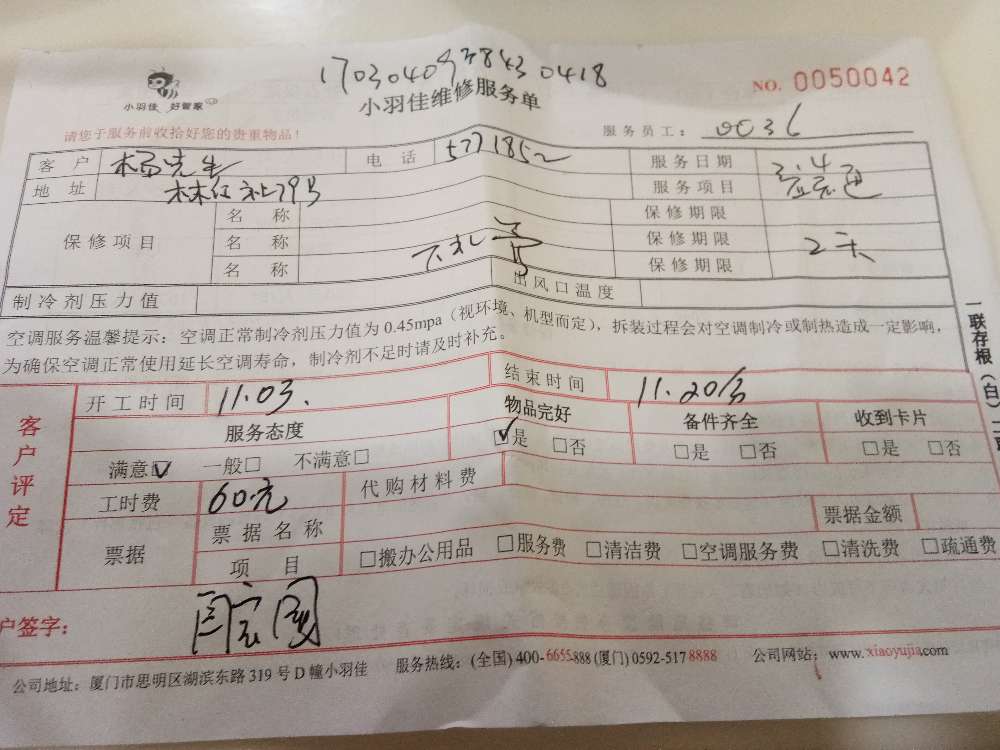 小羽佳 好管家
小羽佳维修服务单
NO. 0050042
请您于服务前收拾好您的贵重物品!
服务员工: 0036
客户 杨先生 电话 服务日期
地址 服务项目
保修项目 名称 保修期限
名称 保修期限 2天
名称 保修期限
制冷剂压力值 出风口温度
空调服务温馨提示:空调正常制冷剂压力值为0.45mpa(视环境、机型而定),拆装过程会对空调制冷或制热造成一定影响,
为确保空调正常使用延长空调寿命,制冷剂不足时请及时补充。
一联存根(白)二联
客户评定
开工时间 11.03. 结束时间 11.20分
服务态度 物品完好 备件齐全 收到卡片
满意☑ 一般□ 不满意□ ☑是 □否 □是 □否 □是 □否
工时费 60.元 代购材料费
票据 票据名称 票据金额
项目 □搬办公用品 □服务费 □清洁费 □空调服务费 □清洗费 □疏通费
户签字:
公司地址:厦门市思明区湖滨东路319号D幢小羽佳 服务热线:(全国)400-6655-888(厦门)0592-5178888 公司网站:www.xiaoyujia.com